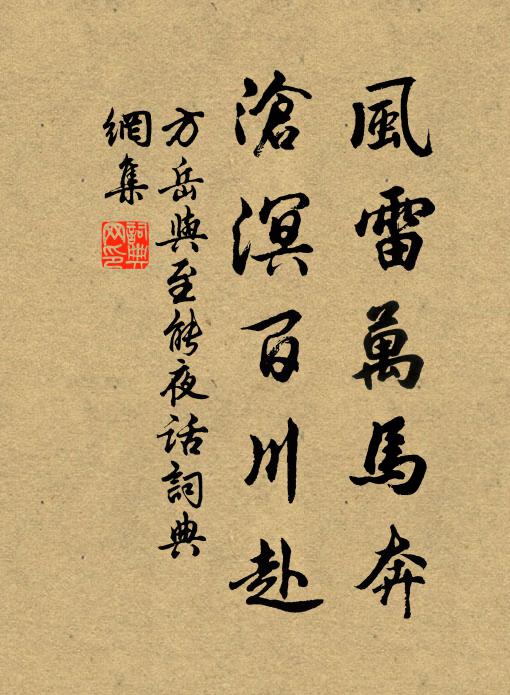 風雷萬馬奔
滄溟百川赴
方岳與至能夜話詞典
網集
詞典
网印